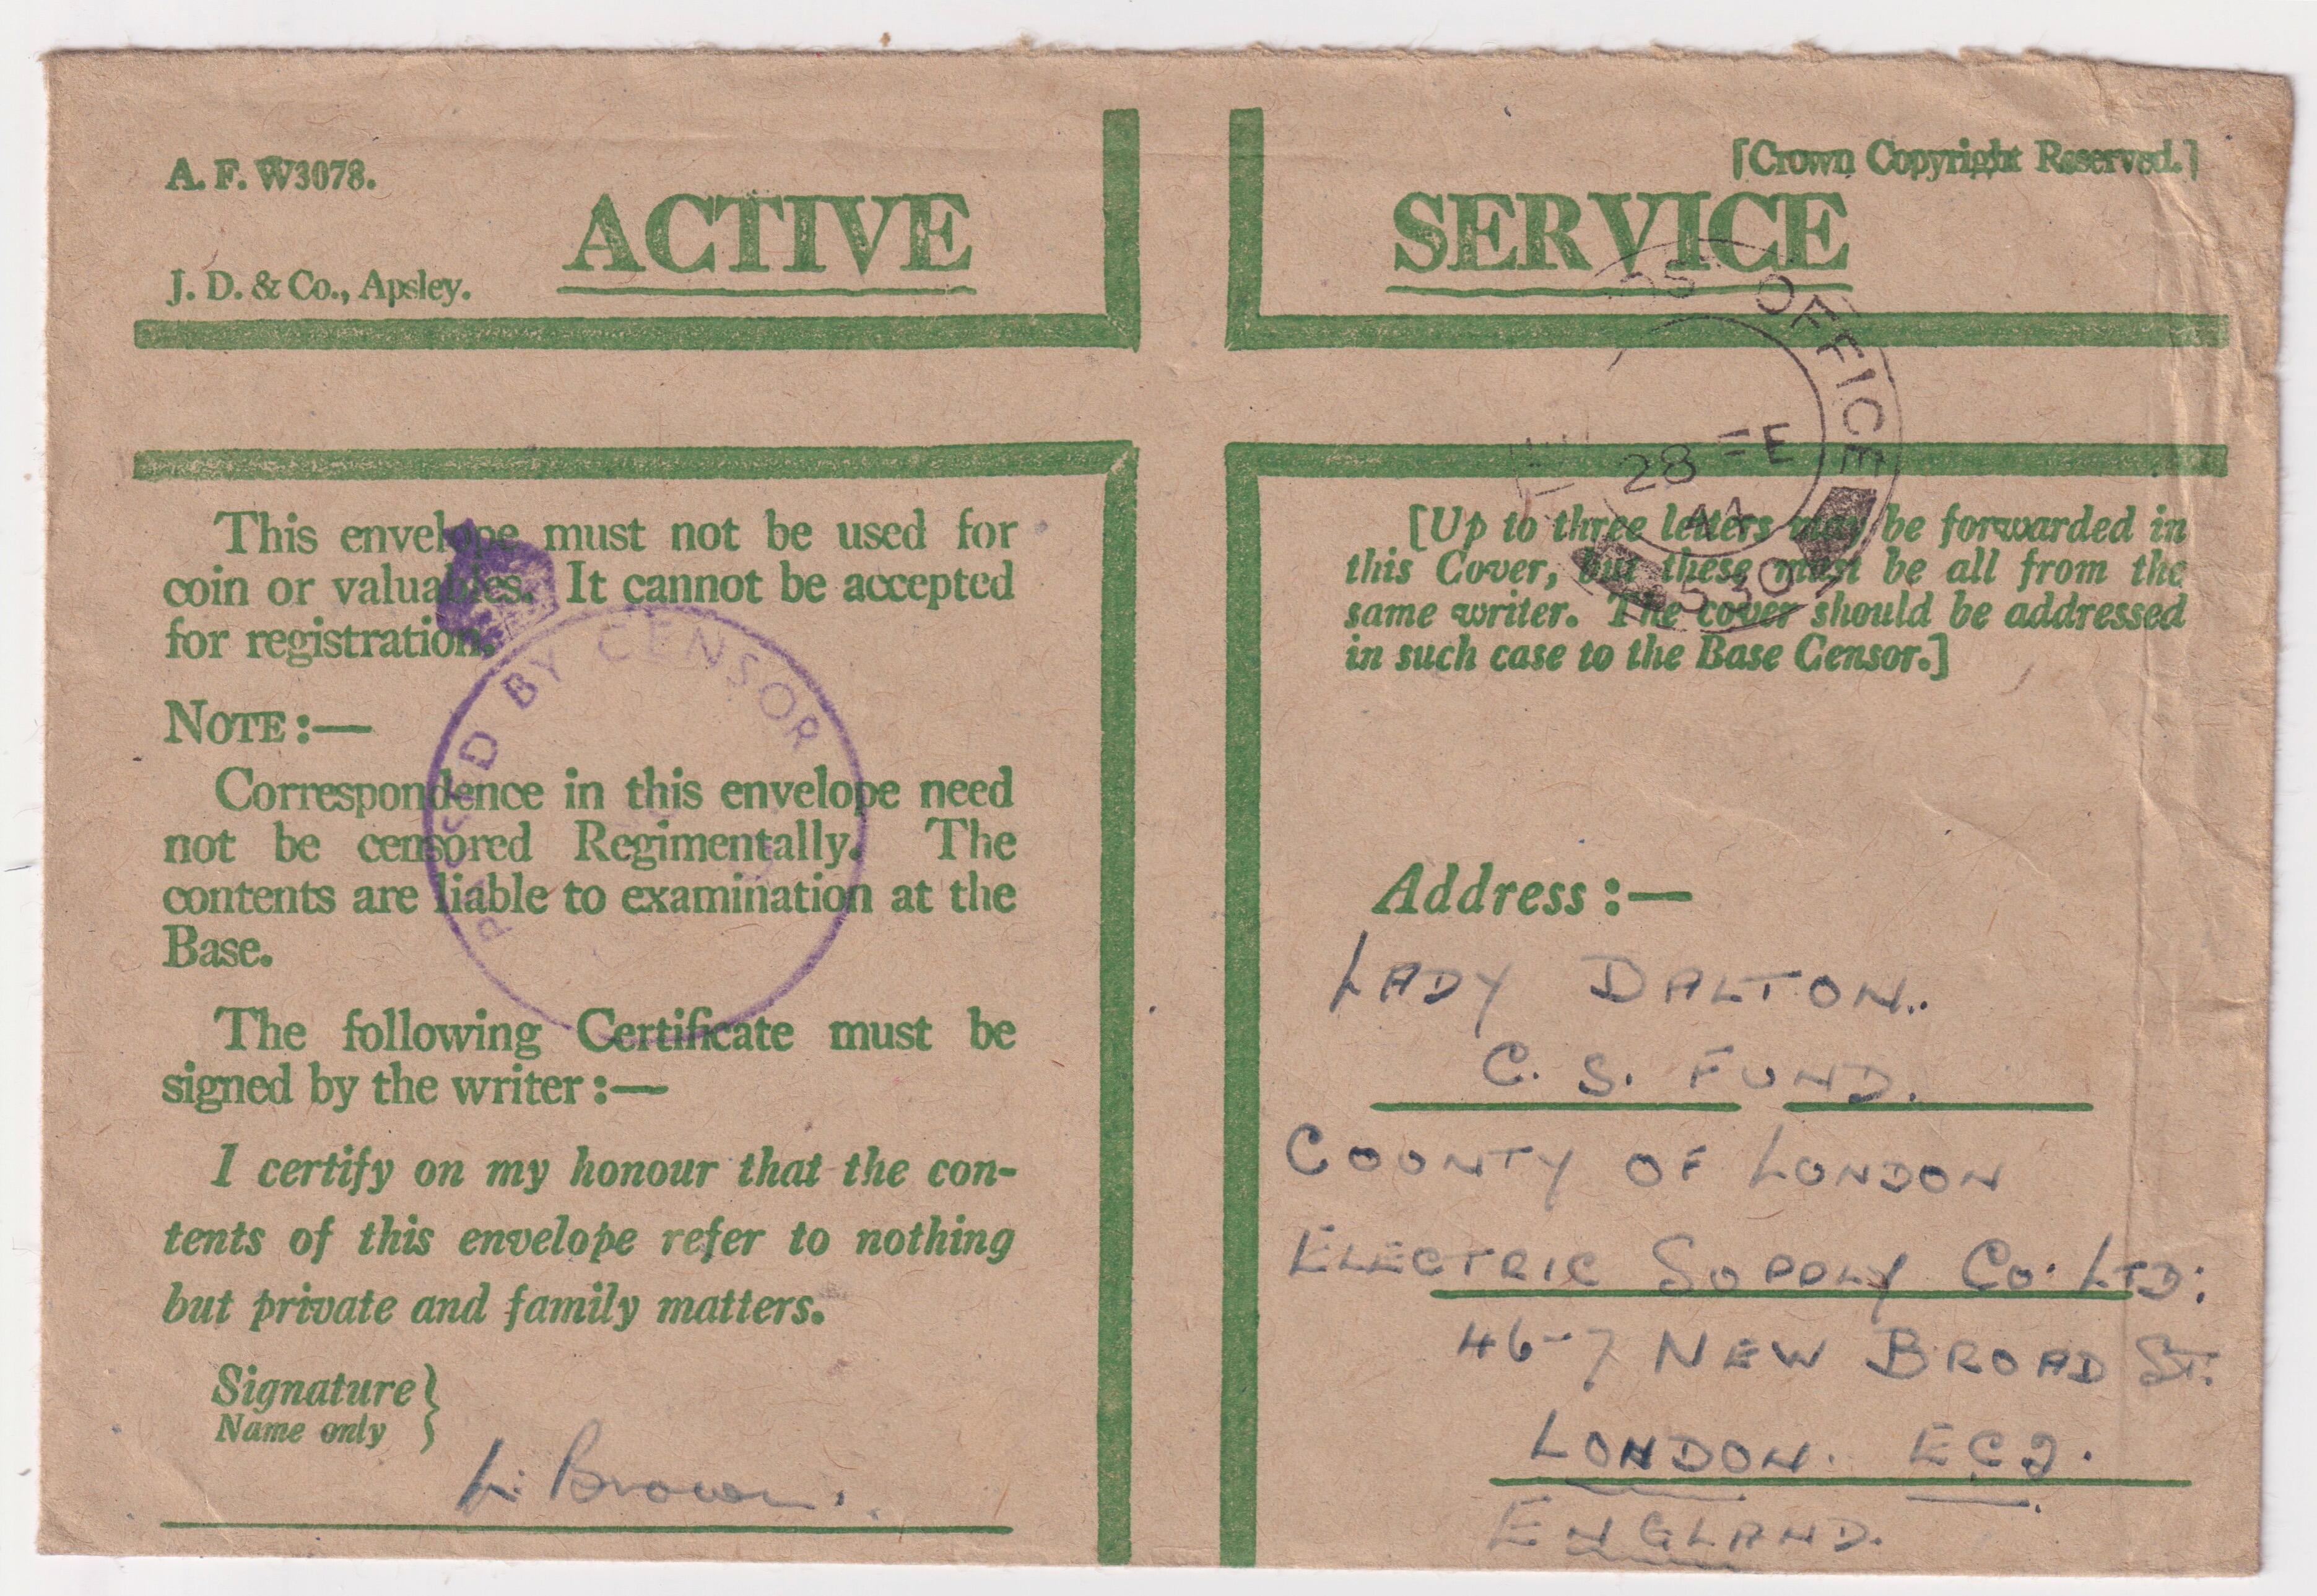 A. F. W3078.
[Crown Copyright Reserved.]
ACTIVE SERVICE
J. D. & Co., Apsley.
This envelope must not be used for
coin or valuables. It cannot be accepted
for registration.
NOTE :—
Correspondence in this envelope need
not be censored Regimentally. The
contents are liable to examination at the
Base.
The following Certificate must be
signed by the writer :—
I certify on my honour that the con-
tents of this envelope refer to nothing
but private and family matters.
Signature }
Name only
L. Brown.
BY CENSOR
OFFICE
28 FE
44
530
[Up to three letters may be forwarded in
this Cover, but these must be all from the
same writer. The cover should be addressed
in such case to the Base Censor.]
Address :—
LADY DALTON.
C. S. FUND.
COUNTY OF LONDON
ELECTRIC SUPPLY CO. LTD:
46-7 NEW BROAD ST.
LONDON. EC2.
ENGLAND.